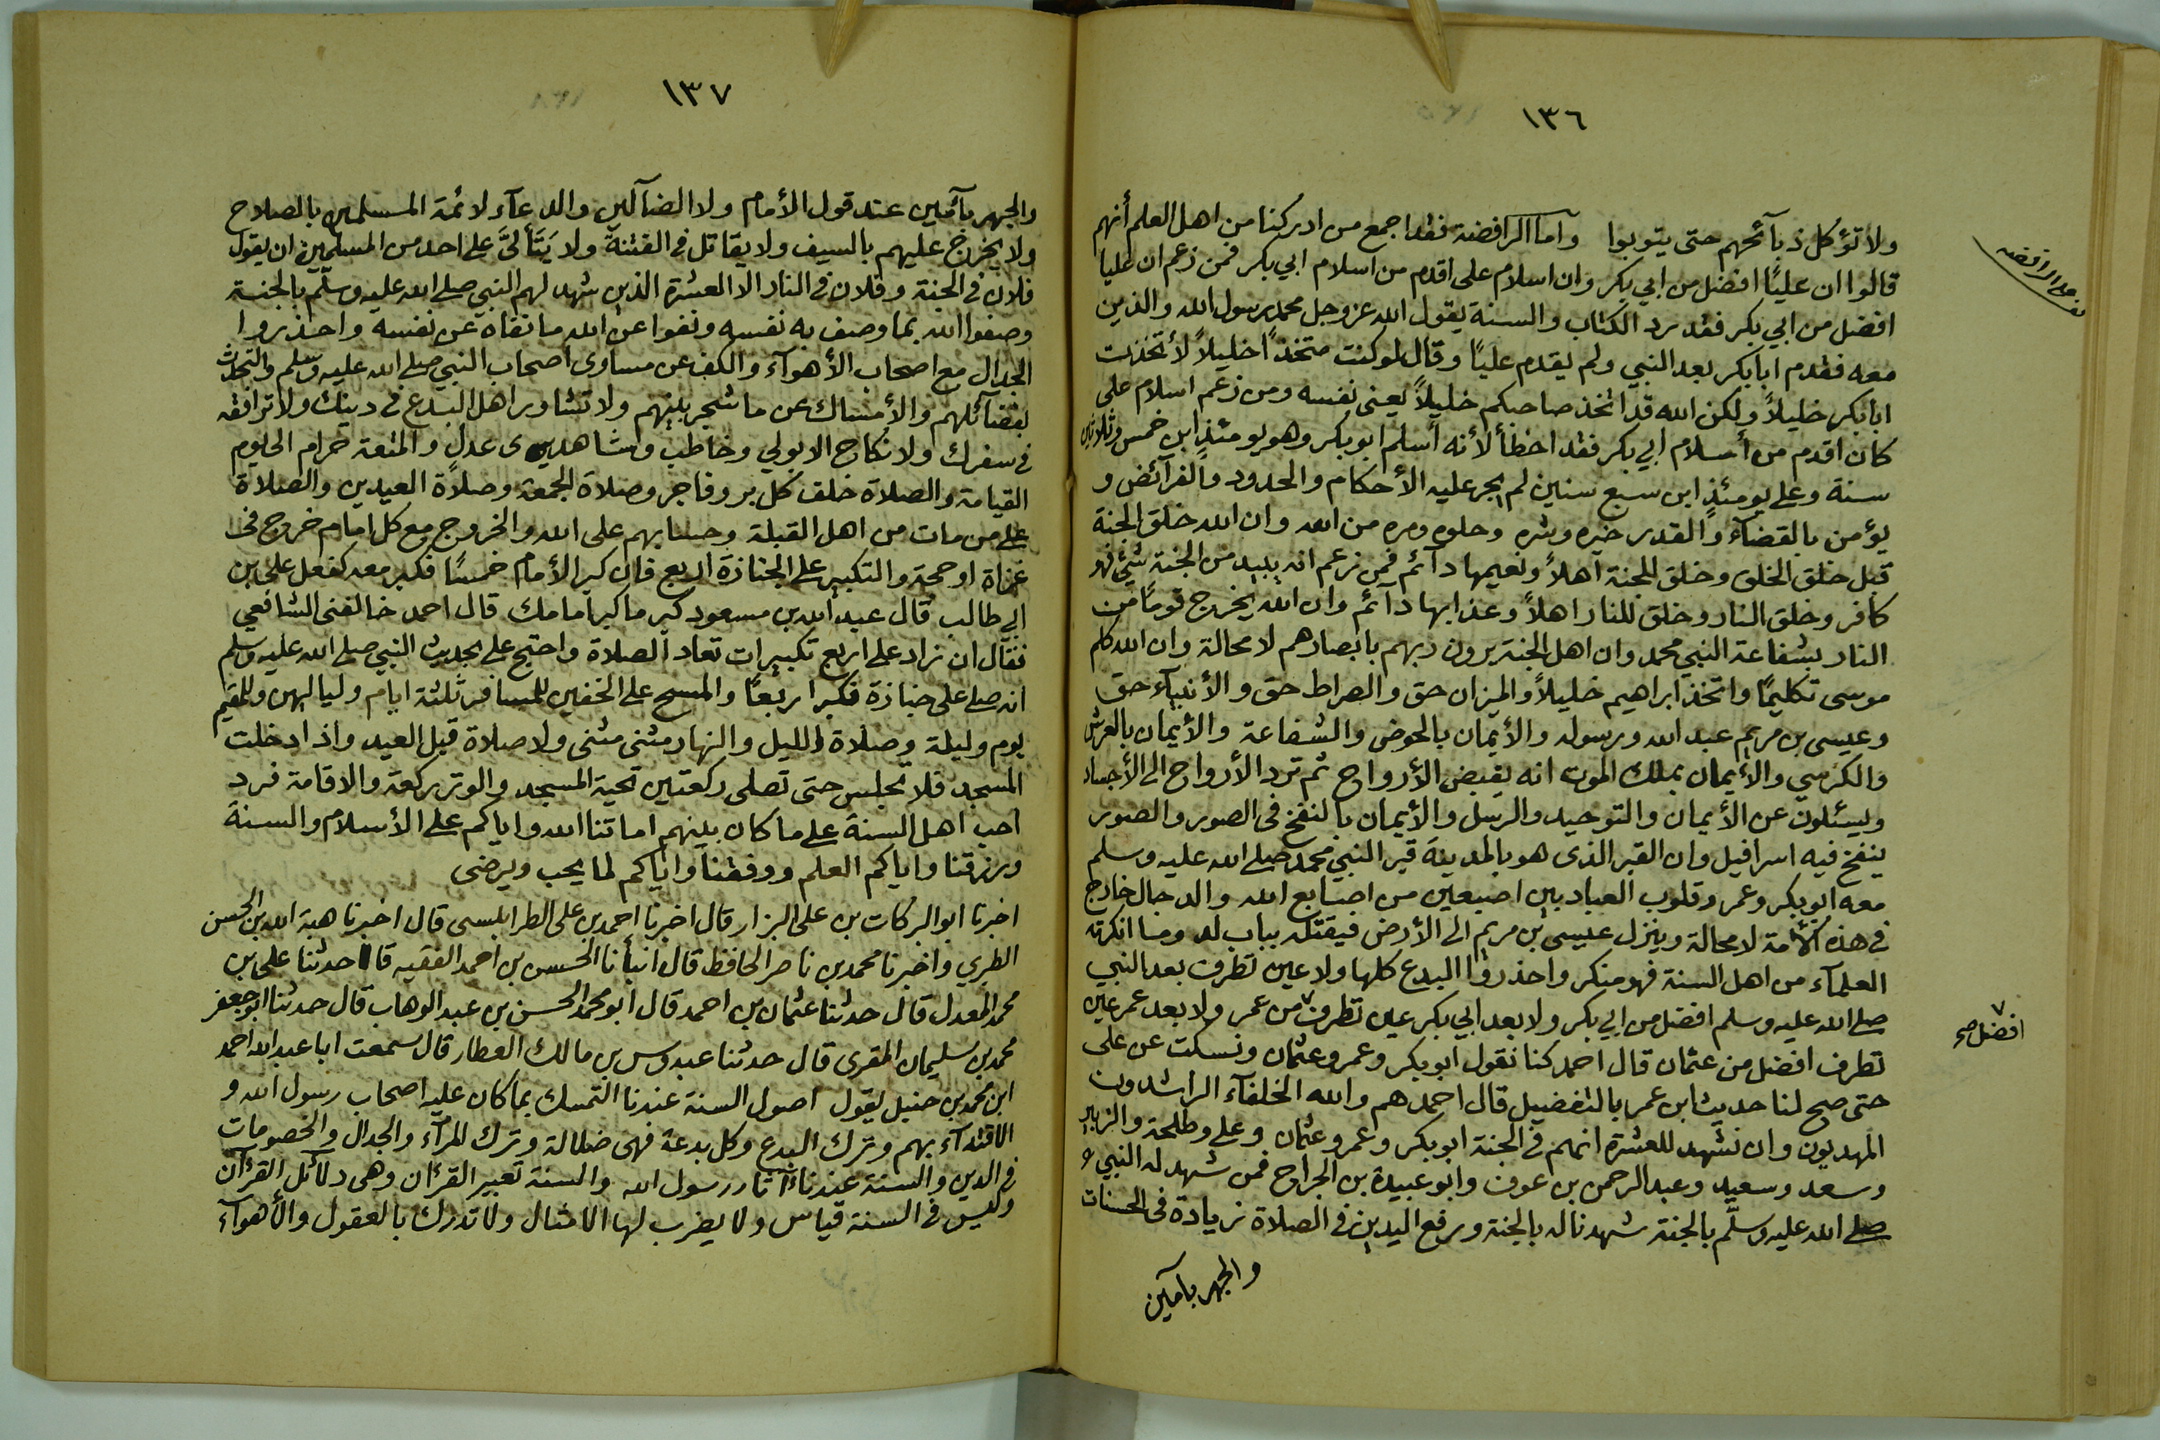 ١٣٦
ولا تؤكل ذبآئحهم حتى يتوبوا وآما الرافضة فقد اجمع من ادركنا من اهل العلم أنهم
قالوا ان عليًا افضل من ابي بكر وان اسلام على اقدم من اسلام ابي بكر فمن زعم ان عليا
افضل من ابي بكر فقد رد الكتاب والسنة يقول الله عز وجل محمد رسول الله والذين
معه فقدم ابا بكر بعد النبي ولم يقدم عليًا وقال لو كنت متخذًا خليلًا لأتخذت
ابا بكر خليلًا ولكن الله قد اتخذ صاحبكم خليلًا يعنى نفسه ومن زعم اسلام على
كان اقدم من أسلام ابي بكر فقد اخطأ لأنه أسلم ابو بكر وهو يومئذٍ ابن خمس وثلاثين
سنة وعلى يومئذٍ ابن سبع سنين لم يجر عليه الأحكام والحدود والفرآئض و
يؤمن بالقضآء والقدر خيره وشره وحلوه ومره من الله وان الله خلق الجنة
قبل خلق الخلق وخلق للجنة اهلاً ونعيمها دآئم فمن زعم انه يبيد من الجنة شئ فهو
كافر وخلق النار وخلق للنار اهلاً وعذابها دآئم وان الله يخرج قومًا من
النار بشفاعة النبي محمد وان اهل الجنة يرون ربهم بابصارهم لا محالة وان الله كلم
موسى تكليمًا واتخذ ابراهيم خليلاً والميزان حق والصراط حق والأنبيآء حق
وعيسى بن مريم عبد الله ورسوله والأيمان بالحوض والشفاعة والأيمان بالعرش
والكرسي والأيمان بملك الموت انه يقبض الأرواح ثم ترد الأرواح الى الأجساد
ويسئلون عن الأيمان والتوحيد والرسل والأيمان بالنفخ فى الصور والصور
ينفخ فيه اسرافيل وان القبر الذى هو بالمدينة قبر النبي محمد صلى الله عليه وسلم
معه ابو بكر وعمر وقلوب العباد بين اصبعين من اصابع الله والدجال خارج
فى هذه الأمة لا محالة وينزل عيسى بن مريم الى الأرض فيقتله بباب لد وما انكرته
العلمآء من اهل السنة فهو منكر واحذروا البدع كلها ولا عين تطرف بعد النبي
صلى الله عليه وسلم افضل من ابي بكر ولا بعد ابي بكر عين تطرف من عمر ولا بعد عمر عين
تطرف افضل من عثمان قال احمد كنا نقول ابو بكر وعمر وعثمان ونسكت عن على
حتى صح لنا حديث ابن عمر بالتفضيل قال احمد هم والله الخلفآء الراشدون
المهديون وان نشهد للعشرة انهم فى الجنة ابو بكر وعمر وعثمان وعلى وطلحة والزبير
وسعد وسعيد وعبد الرحمن بن عوف وابو عبيدة بن الجراح فمن شهد له النبي
صلى الله عليه وسلم بالجنة شهدنا له بالجنة ورفع اليدين فى الصلاة زيادة فى الحسنات
والجهر بآمين
الرافضه
افضل صح
١٣٧
والجهر بآمين عند قول الأمام ولا الضآلين والدعآء لائمة المسلمين بالصلاح
ولا يخرج عليهم بالسيف ولا يقاتل فى الفتنة ولا يتألى على احد من المسلمين ان يقول
فلان فى الجنة وفلان فى النار الا العشرة الذين شهد لهم النبي صلى الله عليه وسلم بالجنة
وصفوا الله بما وصف به نفسه ونفوا عن الله ما نفاه عن نفسه واحذروا
الجدال مع اصحاب الأهوآء والكف عن مساوى اصحاب النبي صلى الله عليه وسلم والتحدث
بفضآئلهم والأمساك عن ما شجر بينهم ولا تشاور اهل البدع فى دينك ولا ترافقه
فى سفرك ولا نكاح الا بولي وخاطب وشاهدي عدل والمتعة حرام الى يوم
القيامة والصلاة خلف كل بر وفاجر وصلاة الجمعة وصلاة العيدين والصلاة
على من مات من اهل القبلة وحسابهم على الله والخروج مع كل امام خروج فى
غزاة او حجة والتكبير على الجنازة اربع فان كبر الأمام خمسًا فكبر معه كفعل على بن
ابي طالب قال عبد الله بن مسعود كبر ما كبر امامك قال احمد خالفنى الشافعي
فقال ان زاد على اربع تكبيرات تعاد الصلاة واحتج على بحديث النبي صلى الله عليه وسلم
انه صلى على جنازة فكبر اربعًا والمسح على الخفين للمسافر ثلثة ايام ولياليهن وللمقيم
يوم وليلة وصلاة الليل والنهار مثنى مثنى ولا صلاة قبل العيد واذا دخلت
المسجد فلا تجلس حتى تصلى ركعتين تحية المسجد والوتر ركعة والاقامة فرد
احب اهل السنة على ما كان بينهم اماتنا الله واياكم على الأسلام والسنة
ورزقنا واياكم العلم ووفقنا واياكم لما يحب ويرضى
اخبرنا ابو البركات بن على البزار قال اخبرنا احمد بن على الطرابلسى قال اخبرنا هبة الله بن الحسن
الطبري واخبرنا محمد بن ناصر الحافظ قال انبأنا الحسن بن احمد الفقيه قال حدثنا على بن
محمد المعدل قال حدثنا عثمان بن احمد قال ابو محمد الحسن بن عبد الوهاب قال حدثنا ابو جعفر
محمد بن سليمان المقرى قال حدثنا عبدوس بن مالك العطار قال سمعت ابا عبد الله احمد
ابن محمد بن حنبل يقول اصول السنة عندنا التمسك بما كان عليه اصحاب رسول الله و
الاقتدآء بهم وترك البدع وكل بدعة فهى ضلالة وترك المرآء والجدال والخصومات
فى الدين والسنة عندنا آثار رسول الله والسنة تعبير القرءان وهى دلآئل القرءان
وليس فى السنة قياس ولا يضرب لها الامثال ولا تدرك بالعقول والأهوآء